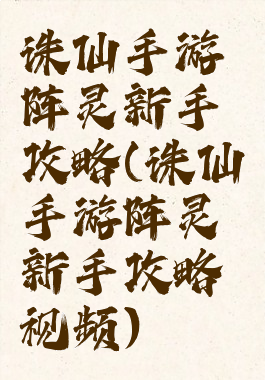 诛仙手游
阵灵新手
攻略(诛仙
手游阵灵
新手攻略
视频)